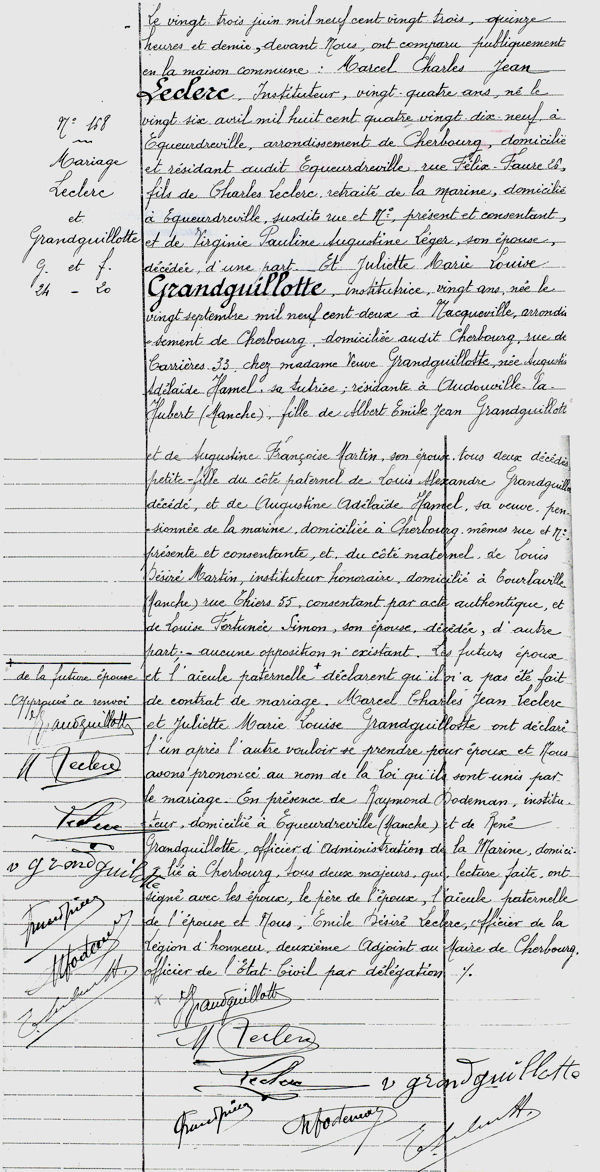 Le vingt trois juin mil neuf cent vingt trois, quinze
heures et demie, devant Nous, ont comparu publiquement
en la maison commune : Marcel Charles Jean
Leclerc, Instituteur, vingt-quatre ans, né le
vingt six avril mil huit cent quatre vingt dix-neuf à
Equeurdreville, arrondissement de Cherbourg, domicilié
et résidant audit Equeurdreville, rue Félix-Faure 26,
fils de Charles Leclerc, retraité de la marine, domicilié
à Equeurdreville, susdits rue et No, présent et consentant,
et de Virginie Pauline Augustine Léger, son épouse,
décédée, d'une part. Et Juliette Marie Louise
Grandguillotte, institutrice, vingt ans, née le
vingt septembre mil neuf cent-deux à Nacqueville, arrondis
-sement de Cherbourg, domiciliée audit Cherbourg, rue de
Carrières 33, chez madame Veuve Grandguillotte, née Augustin
Adélaïde Hamel, sa tutrice ; résidante à Audouville-la-
Hubert (Manche), fille de Albert Emile Jean Grandguillott
No 158
Mariage
Leclerc
et
Grandguillotte
G. et f.
24 - 20
et de Augustine Françoise Martin, son épouse, tous deux décédés
petite-fille du côté paternel de Louis Alexandre Grandguillo
décédé, et de Augustine Adélaïde Hamel, sa veuve, pen-
-sionnée de la marine, domiciliée à Cherbourg, mêmes rue et No,
présente et consentante, et, du côté maternel, de Louis
Désiré Martin, instituteur honoraire, domicilié à Tourlaville
(Manche) rue Thiers 55, consentant par acte authentique, et
de Louise Fortunée Simon, son épouse, décédée, d'autre
part :- aucune opposition n'existant. Les futurs époux
et l'aïeule paternelle + déclarent qu'il n'a pas été fait
de contrat de mariage. Marcel Charles Jean Leclerc
et Juliette Marie Louise Grandguillotte ont déclaré
l'un après l'autre vouloir se prendre pour époux et Nous
avons prononcé au nom de la Loi qu'ils sont unis par
le mariage. En présence de Raymond Bodeman, institu-
teur, domicilié à Equeurdreville (Manche) et de René
Grandguillotte, officier d'Administration de la Marine, domici-
lié à Cherbourg, tous deux majeurs, qui, lecture faite, ont
signé avec les époux, le père de l'époux, l'aïeule paternelle
de l'épouse et Nous, Emile Désiré Leclerc, officier de la
Légion d'honneur, deuxième Adjoint au Maire de Cherbourg,
officier de l'Etat-Civil par délégation ./.
+ de la future épouse
Approuvé ce renvoi
Grandguillott
M Leclerc
Leclerc
v grandguillotte
Grandguillott
M Leclerc
Leclerc
v grandguillotte